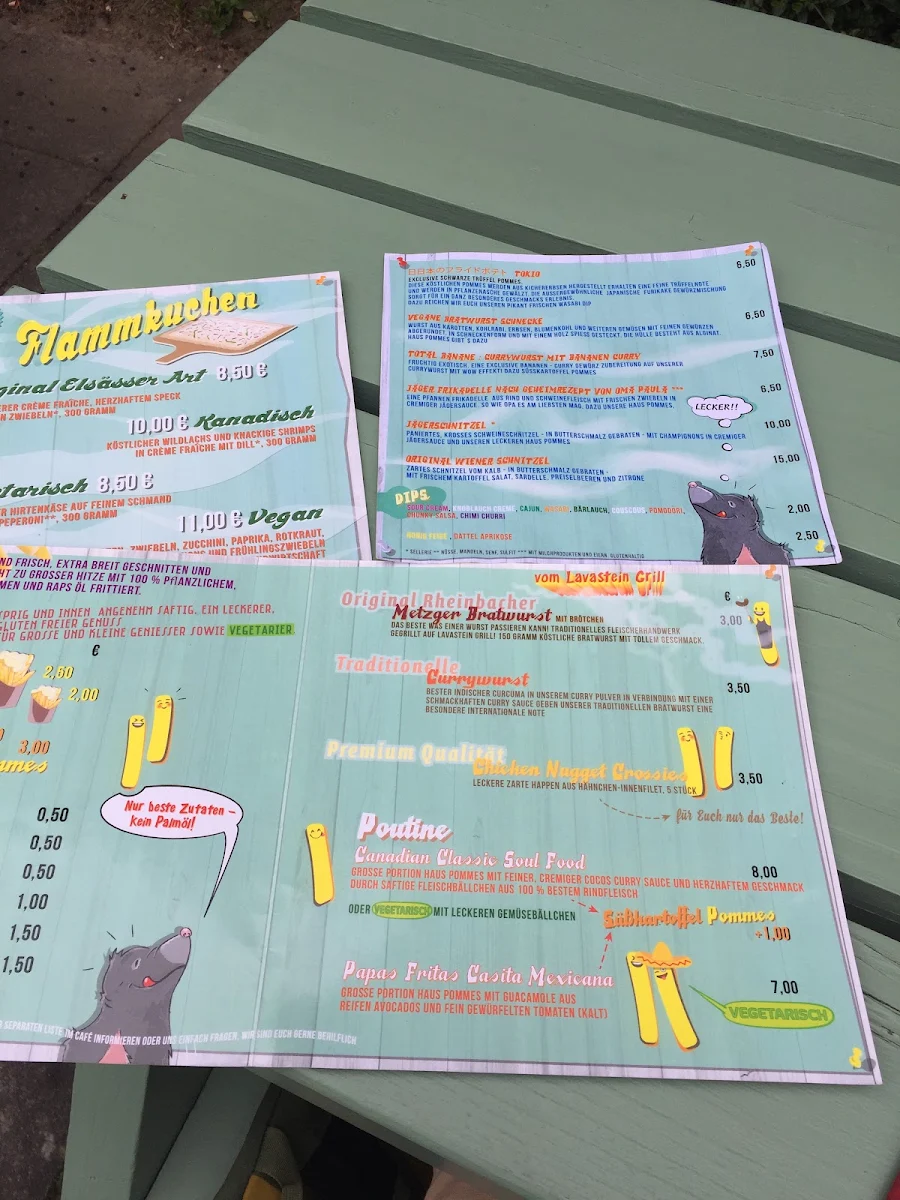 Flammkuchen
ginal Elsässer Art 8,50 €
ERER CRÈME FRAÎCHE, HERZHAFTEM SPECK
N ZWIEBELN*, 300 GRAMM
10,00 € Kanadisch
KÖSTLICHER WILDLACHS UND KNACKIGE SHRIMPS
IN CRÈME FRAÎCHE MIT DILL*, 300 GRAMM
tarisch 8,50 €
ER HIRTENKÄSE AUF FEINEM SCHMAND
PEPERONI**, 300 GRAMM
11,00 € Vegan
ZWIEBELN, ZUCCHINI, PAPRIKA, ROTKRAUT,
UND FRÜHLINGSZWIEBELN
TOKIO 6,50
EXCLUSIVE SCHWARZE TRÜFFEL POMMES,
DIESE KÖSTLICHEN POMMES WERDEN AUS KICHERERBSEN HERGESTELLT ERHALTEN EINE FEINE TRÜFFELNOTE
UND WERDEN IN PFLANZENASCHE GEWÄLZT. DIE AUSSERGEWÖHNLICHE JAPANISCHE FURIKAKE GEWÜRZMISCHUNG
SORGT FÜR EIN GANZ BESONDERES GESCHMACKS ERLEBNIS.
DAZU REICHEN WIR EUCH UNSEREN PIKANT FRISCHEN WASABI DIP
VEGANE BRATWURST SCHNECKE 6,50
WURST AUS KAROTTEN, KOHLRABI, ERBSEN, BLUMENKOHL UND WEITEREN GEMÜSEN MIT FEINEN GEWÜRZEN
ABGERUNDET. IN SCHNECKENFORM UND MIT EINEM HOLZ SPIESS GESTECKT. DIE HÜLLE BESTEHT AUS ALGINAT.
HAUS POMMES GIBT´S DAZU
TOTAL BANANE - CURRYWURST MIT BANANEN CURRY 7,50
FRUCHTIG EXOTISCH. EINE EXCLUSIVE BANANEN - CURRY GEWÜRZ ZUBEREITUNG AUF UNSERER
CURRYWURST MIT WOW EFFEKT! DAZU SÜSSKARTOFFEL POMMES
JÄGER FRIKADELLE NACH GEHEIMREZEPT VON OMA PAULA *** 6,50
EINE PFANNEN FRIKADELLE AUS RIND UND SCHWEINEFLEISCH MIT FRISCHEN ZWIEBELN IN
CREMIGER JÄGERSAUCE. SO WIE OPA ES AM LIEBSTEN MAG. DAZU UNSERE HAUS POMMES.
LECKER!!
JÄGERSCHNITZEL * 10,00
PANIERTES, KROSSES SCHWEINESCHNITZEL - IN BUTTERSCHMALZ GEBRATEN - MIT CHAMPIGNONS IN CREMIGER
JÄGERSAUCE UND UNSEREN LECKEREN HAUS POMMES
ORIGINAL WIENER SCHNITZEL 15,00
ZARTES SCHNITZEL VOM KALB - IN BUTTERSCHMALZ GEBRATEN -
MIT FRISCHEM KARTOFFEL SALAT, SARDELLE, PREISELBEEREN UND ZITRONE
DIPS
SOUR CREAM, KNOBLAUCH CREME, CAJUN, WASABI, BÄRLAUCH, COUSCOUS, POMODORI, 2,00
CHUNKY SALSA, CHIMI CHURRI
HONIG SENF, DATTEL APRIKOSE 2,50
* SELLERIE ** NÜSSE, MANDELN, SENF, SULFIT *** MIT MILCHPRODUKTEN UND EIERN, GLUTENHALTIG
ND FRISCH, EXTRA BREIT GESCHNITTEN UND
HT ZU GROSSER HITZE MIT 100 % PFLANZLICHEM,
MEN UND RAPS ÖL FRITTIERT.
SPRIG UND INNEN ANGENEHM SAFTIG, EIN LECKERER,
GLUTEN FREIER GENUSS
FÜR GROSSE UND KLEINE GENIESSER SOWIE VEGETARIER
€
2,60
2,00
3,00
mmes
Nur beste Zutaten –
kein Palmöl!
0,50
0,50
0,50
1,00
1,50
1,50
SEPARATEN LISTE IM CAFÉ INFORMIEREN ODER UNS EINFACH FRAGEN. WIR SIND EUCH GERNE BEHILFLICH
vom Lavastein Grill
Original Rheinbacher €
Metzger Bratwurst MIT BRÖTCHEN 3,00
DAS BESTE WAS EINER WURST PASSIEREN KANN! TRADITIONELLES FLEISCHERHANDWERK
GEGRILLT AUF LAVASTEIN GRILL! 150 GRAMM KÖSTLICHE BRATWURST MIT TOLLEM GESCHMACK.
Traditionelle
Currywurst 3,50
BESTER INDISCHER CURCUMA IN UNSEREM CURRY PULVER IN VERBINDUNG MIT EINER
SCHMACKHAFTEN CURRY SAUCE GEBEN UNSERER TRADITIONELLEN BRATWURST EINE
BESONDERE INTERNATIONALE NOTE
Premium Qualität
Chicken Nugget Crossies 3,50
LECKERE ZARTE HAPPEN AUS HÄHNCHEN-INNENFILET, 5 STÜCK
für Euch nur das Beste!
Poutine
Canadian Classic Soul Food 8,00
GROSSE PORTION HAUS POMMES MIT FEINER, CREMIGER COCOS CURRY SAUCE UND HERZHAFTEM GESCHMACK
DURCH SAFTIGE FLEISCHBÄLLCHEN AUS 100 % BESTEM RINDFLEISCH
ODER VEGETARISCH MIT LECKEREN GEMÜSEBÄLLCHEN
Süßkartoffel Pommes
+1,00
Papas Fritas Casita Mexicana 7,00
GROSSE PORTION HAUS POMMES MIT GUACAMOLE AUS
REIFEN AVOCADOS UND FEIN GEWÜRFELTEN TOMATEN (KALT)
VEGETARISCH